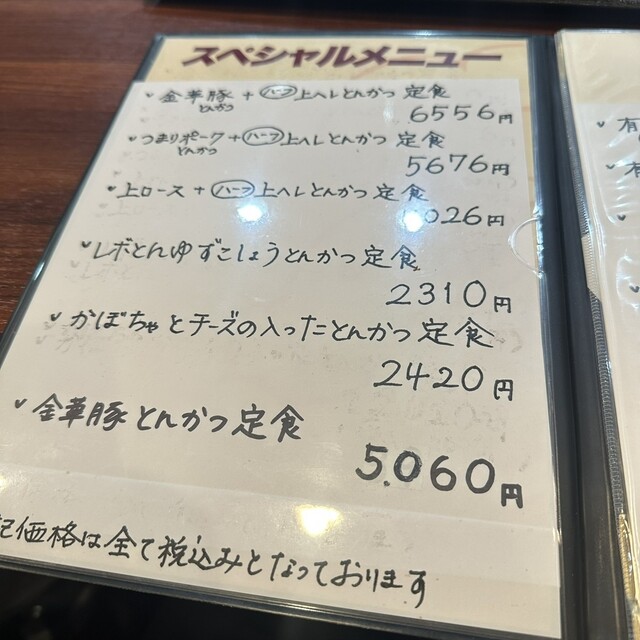 スペシャルメニュー
金華豚とんかつ + ハーフ 上ヘレとんかつ 定食
6556円
つまりポークとんかつ + ハーフ 上ヘレとんかつ 定食
5676円
上ロース + ハーフ 上ヘレとんかつ 定食
026円
レボとんゆずこしょうとんかつ定食
2310円
かぼちゃとチーズの入ったとんかつ定食
2420円
金華豚とんかつ定食
5.060円
記価格は全て税込みとなっております
有